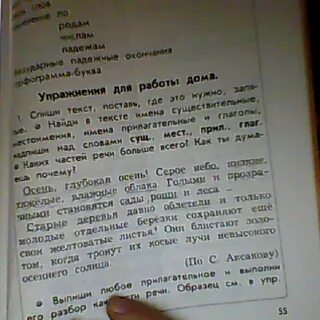 слов
по
родам
числам
падежам
падежные окончания
орфограмма-буква
Упражнения для работы дома.
1. Спиши текст, поставь, где это нужно, запя-
Найди в тексте имена существительные,
местоимения, имена прилагательные и глаголы,
надпиши над словами сущ., мест., прил., глаг.
Каких частей речи больше всего? Как ты дума-
ешь почему?
Осень, глубокая осень! Серое небо, низкие,
тяжёлые, влажные облака. Голыми и прозра-
чными становятся сады рощи и леса –
Старые деревья давно облетели и только
молодые отдельные берёзки сохраняют ещё
свои желтоватые листья. Они блистают золо-
том, когда тронут их косые лучи невысокого
осеннего солнца.
(По С. Аксакову)
Выпиши любое прилагательное и выполни
его разбор как части речи. Образец см. в упр.
55